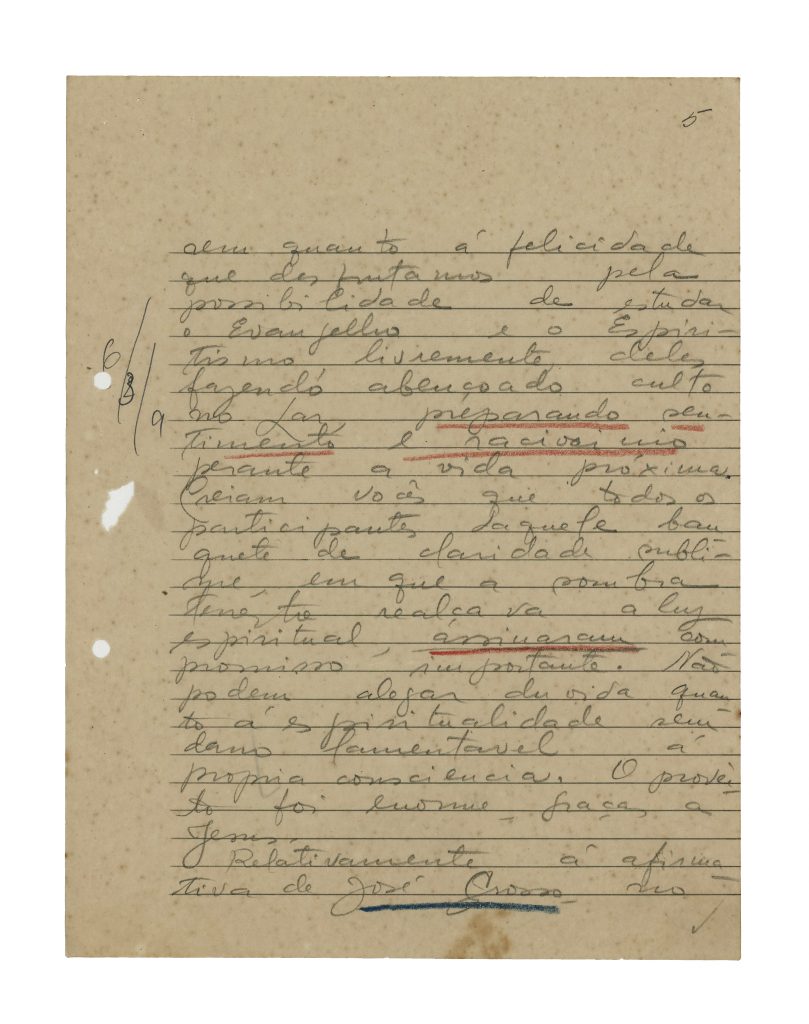 5
rem quanto á felicidade
que desfrutamos pela
possibilidade de estudar
o Evangelho e o Espiri-
tismo livremente, deles
6/8/9
fazendo abençoado culto
no Lar, preparando sen-
timento e raciocinio
perante a vida próxima.
Creiam vocês que todos os
participantes daquele ban
quete de claridade subli-
me, em que a sombra
terrestre realçava a luz
espiritual, assinaram com
promisso importante. Não
podem alegar duvida quan
to á espiritualidade sem
dano lamentavel á
propria consciencia. O provei-
to foi enorme, graças a
Jesus.
Relativamente á afirma-
tiva de José Grosso no